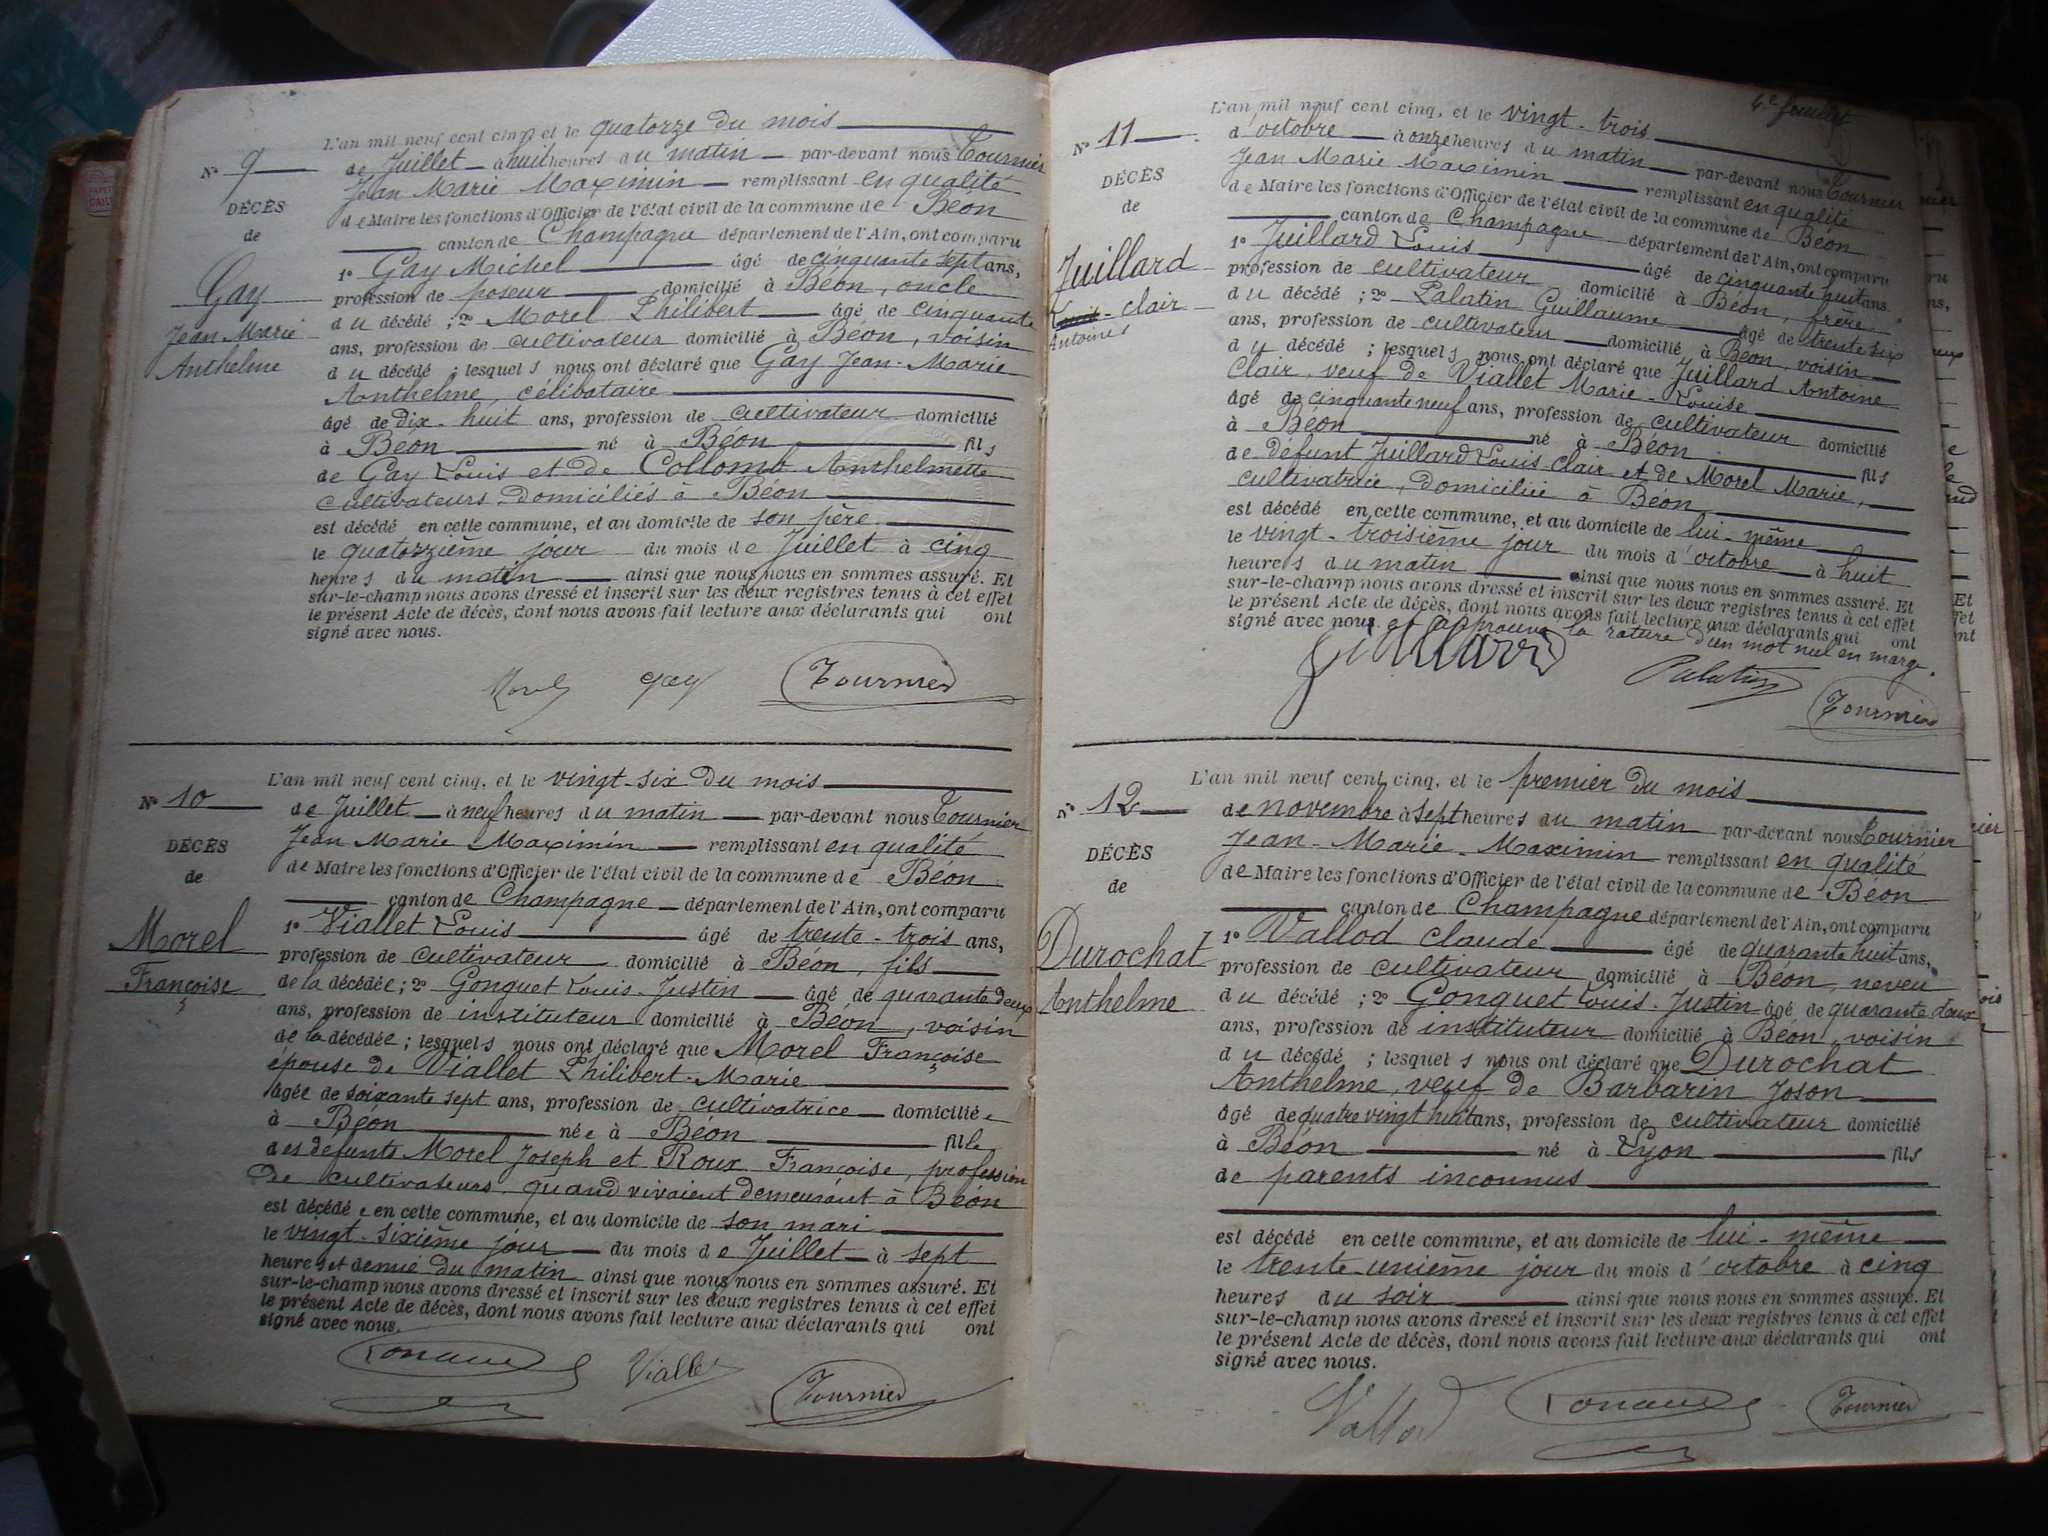 L'an mil neuf cent cinq, et le quatorze du mois
Nº 9
de Juillet à huit heures du matin par-devant nous Tournier
Jean Marie Maximin remplissant en qualité
DÉCÈS
de Maire les fonctions d'Officier de l'état civil de la commune de Béon
de
canton de Champagne département de l'Ain, ont comparu
Gay
Jean Marie
Anthelme
1º Gay Michel âgé de cinquante sept ans,
profession de poseur domicilié à Béon, oncle
du décédé ; 2º Morel Philibert âgé de cinquante
ans, profession de cultivateur domicilié à Béon, voisin
du décédé ; lesquels nous ont déclaré que Gay Jean-Marie
Anthelme, célibataire
âgé de dix-huit ans, profession de cultivateur domicilié
à Béon né à Béon fils
de Gay Louis et de Collomb Anthelmette
cultivateurs domiciliés à Béon
est décédé en cette commune, et au domicile de son père
le quatorzième jour du mois de Juillet à cinq
heures du matin ainsi que nous nous en sommes assuré. Et
sur-le-champ nous avons dressé et inscrit sur les deux registres tenus à cet effet
le présent Acte de décès, dont nous avons fait lecture aux déclarants qui ont
signé avec nous.
Morel Gay Tournier
L'an mil neuf cent cinq, et le vingt-six du mois
Nº 10
de Juillet à neuf heures du matin par-devant nous Tournier
Jean Marie Maximin remplissant en qualité
DÉCÈS
de Maire les fonctions d'Officier de l'état civil de la commune de Béon
de
canton de Champagne département de l'Ain, ont comparu
Morel
Françoise
1º Viallet Louis âgé de trente-trois ans,
profession de cultivateur domicilié à Béon, fils
de la décédée ; 2º Gonguet Louis-Justin âgé de quarante deux
ans, profession de instituteur domicilié à Béon, voisin
de la décédée ; lesquels nous ont déclaré que Morel Françoise
épouse de Viallet Philibert-Marie
âgée de soixante sept ans, profession de cultivatrice domiciliée
à Béon née à Béon fille
des défunts Morel Joseph et Roux Françoise, profession
de cultivateurs, quand vivaient demeurant à Béon
est décédée en cette commune, et au domicile de son mari
le vingt-sixième jour du mois de Juillet à sept
heures et demie du matin ainsi que nous nous en sommes assuré. Et
sur-le-champ nous avons dressé et inscrit sur les deux registres tenus à cet effet
le présent Acte de décès, dont nous avons fait lecture aux déclarants qui ont
signé avec nous.
Viallet Tournier
4e feuillet
L'an mil neuf cent cinq, et le vingt-trois
Nº 11
d'octobre à onze heures du matin par-devant nous Tournier
Jean Marie Maximin remplissant en qualité
DÉCÈS
de Maire les fonctions d'Officier de l'état civil de la commune de Béon
de
canton de Champagne département de l'Ain, ont comparu
Juillard
clair
Antoine
1º Juillard Louis âgé de cinquante huit ans
profession de cultivateur domicilié à Béon, frère
du décédé ; 2º Palatin Guillaume âgé de trente six
ans, profession de cultivateur domicilié à Béon, voisin
du décédé ; lesquels nous ont déclaré que Juillard Antoine
Clair, veuf de Viallet Marie-Louise
âgé de cinquante neuf ans, profession de cultivateur domicilié
à Béon né à Béon fils
de défunt Juillard Louis Clair et de Morel Marie,
cultivatrice, domiciliée à Béon
est décédé en cette commune, et au domicile de lui-même
le vingt-troisième jour du mois d'octobre à huit
heures du matin ainsi que nous nous en sommes assuré. Et
sur-le-champ nous avons dressé et inscrit sur les deux registres tenus à cet effet
le présent Acte de décès, dont nous avons fait lecture aux déclarants qui ont
signé avec nous. et approuvé la rature d'un mot nul en marge.
Juillard Palatin Tournier
L'an mil neuf cent cinq, et le premier du mois
Nº 12
de novembre à sept heures du matin par-devant nous Tournier
Jean-Marie-Maximin remplissant en qualité
DÉCÈS
de Maire les fonctions d'Officier de l'état civil de la commune de Béon
de
canton de Champagne département de l'Ain, ont comparu
Durochat
Anthelme
1º Vallod Claude âgé de quarante huit ans,
profession de cultivateur domicilié à Béon, neveu
du décédé ; 2º Gonguet Louis-Justin âgé de quarante deux
ans, profession de instituteur domicilié à Béon, voisin
du décédé ; lesquels nous ont déclaré que Durochat
Anthelme, veuf de Barbarin Joson
âgé de quatre vingt huit ans, profession de cultivateur domicilié
à Béon né à Lyon fils
de parents inconnus
est décédé en cette commune, et au domicile de lui-même
le trente-unième jour du mois d'octobre à cinq
heures du soir ainsi que nous nous en sommes assuré. Et
sur-le-champ nous avons dressé et inscrit sur les deux registres tenus à cet effet
le présent Acte de décès, dont nous avons fait lecture aux déclarants qui ont
signé avec nous.
Vallod Tournier